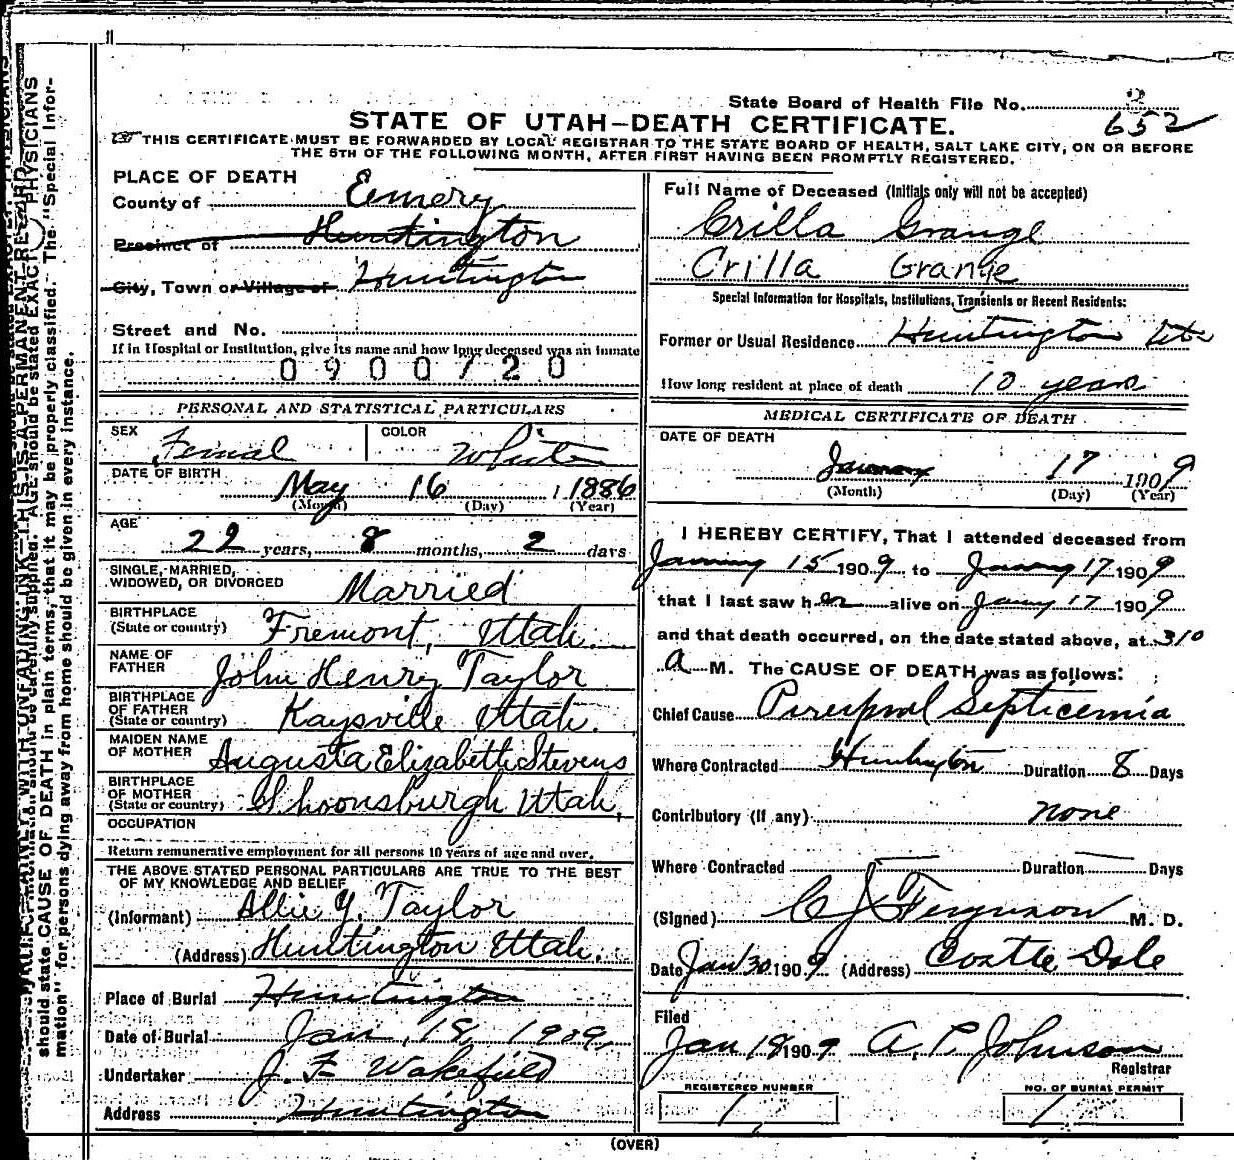 State Board of Health File No. 2
652
STATE OF UTAH—DEATH CERTIFICATE.
THIS CERTIFICATE MUST BE FORWARDED BY LOCAL REGISTRAR TO THE STATE BOARD OF HEALTH, SALT LAKE CITY, ON OR BEFORE
THE 5TH OF THE FOLLOWING MONTH, AFTER FIRST HAVING BEEN PROMPTLY REGISTERED.
PLACE OF DEATH
County of Emery
Precinct of Huntington
City, Town or Village of Huntington
Street and No.
If in Hospital or Institution, give its name and how long deceased was an inmate
0900720
PERSONAL AND STATISTICAL PARTICULARS
SEX Femal COLOR White
DATE OF BIRTH
May 16 1886
(Month) (Day) (Year)
AGE
22 years, 8 months, 2 days
SINGLE, MARRIED,
WIDOWED, OR DIVORCED Married
BIRTHPLACE
(State or country) Fremont, Utah.
NAME OF
FATHER John Henry Taylor
BIRTHPLACE
OF FATHER
(State or country) Kaysville Utah.
MAIDEN NAME
OF MOTHER Augusta Elizabeth Stevens
BIRTHPLACE
OF MOTHER
(State or country) Shoonsburgh Utah,
OCCUPATION
Return remunerative employment for all persons 10 years of age and over.
THE ABOVE STATED PERSONAL PARTICULARS ARE TRUE TO THE BEST
OF MY KNOWLEDGE AND BELIEF
(Informant) Allie Y. Taylor
(Address) Huntington Utah.
Place of Burial Huntington
Date of Burial Jan. 18 1909,
Undertaker J. F Wakefield
Address Huntington
Full Name of Deceased (Initials only will not be accepted)
Crilla Grange
Crilla Grange
Special Information for Hospitals, Institutions, Transients or Recent Residents:
Former or Usual Residence Huntington Utah
How long resident at place of death 10 years
MEDICAL CERTIFICATE OF DEATH
DATE OF DEATH
January 17 1909
(Month) (Day) (Year)
I HEREBY CERTIFY, That I attended deceased from
January 15 1909 to January 17 1909
that I last saw her alive on Jany 17 1909
and that death occurred, on the date stated above, at 310
a M. The CAUSE OF DEATH was as follows:
Chief Cause Puerpral Septicemia
Where Contracted Huntington Duration 8 Days
Contributory (If any) none
Where Contracted Duration Days
(Signed) C J Ferguson M. D.
Date Jan 30 1909 (Address) Castle Dale
Filed
Jan 18 1909 A. P. Johnson
Registrar
REGISTERED NUMBER NO. OF BURIAL PERMIT
1 1
(OVER)
should state CAUSE OF DEATH in plain terms, that it may be properly classified. The "Special Infor-
mation" for persons dying away from home should be given in every instance.